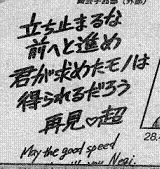 立ち止まるな
前へと進め
君が求めたモノは
得られるだろう
再見♡超
May the good speed
Negi.
28.